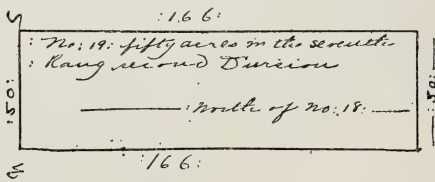 :166:
: No: 19: fifty acres in the seventh
: Rang second Divison
:50:
:50:
: North of No: 18:
166: